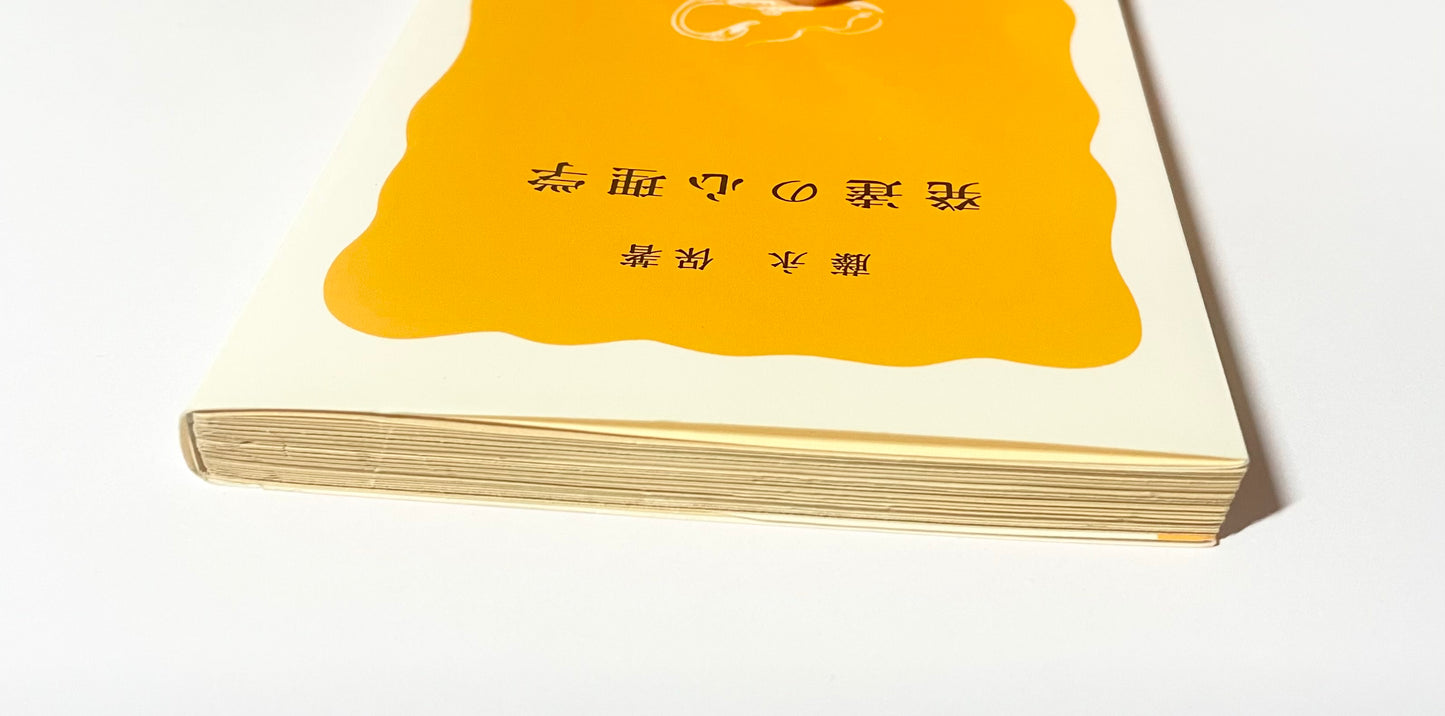 発達の心理学
藤永 保著